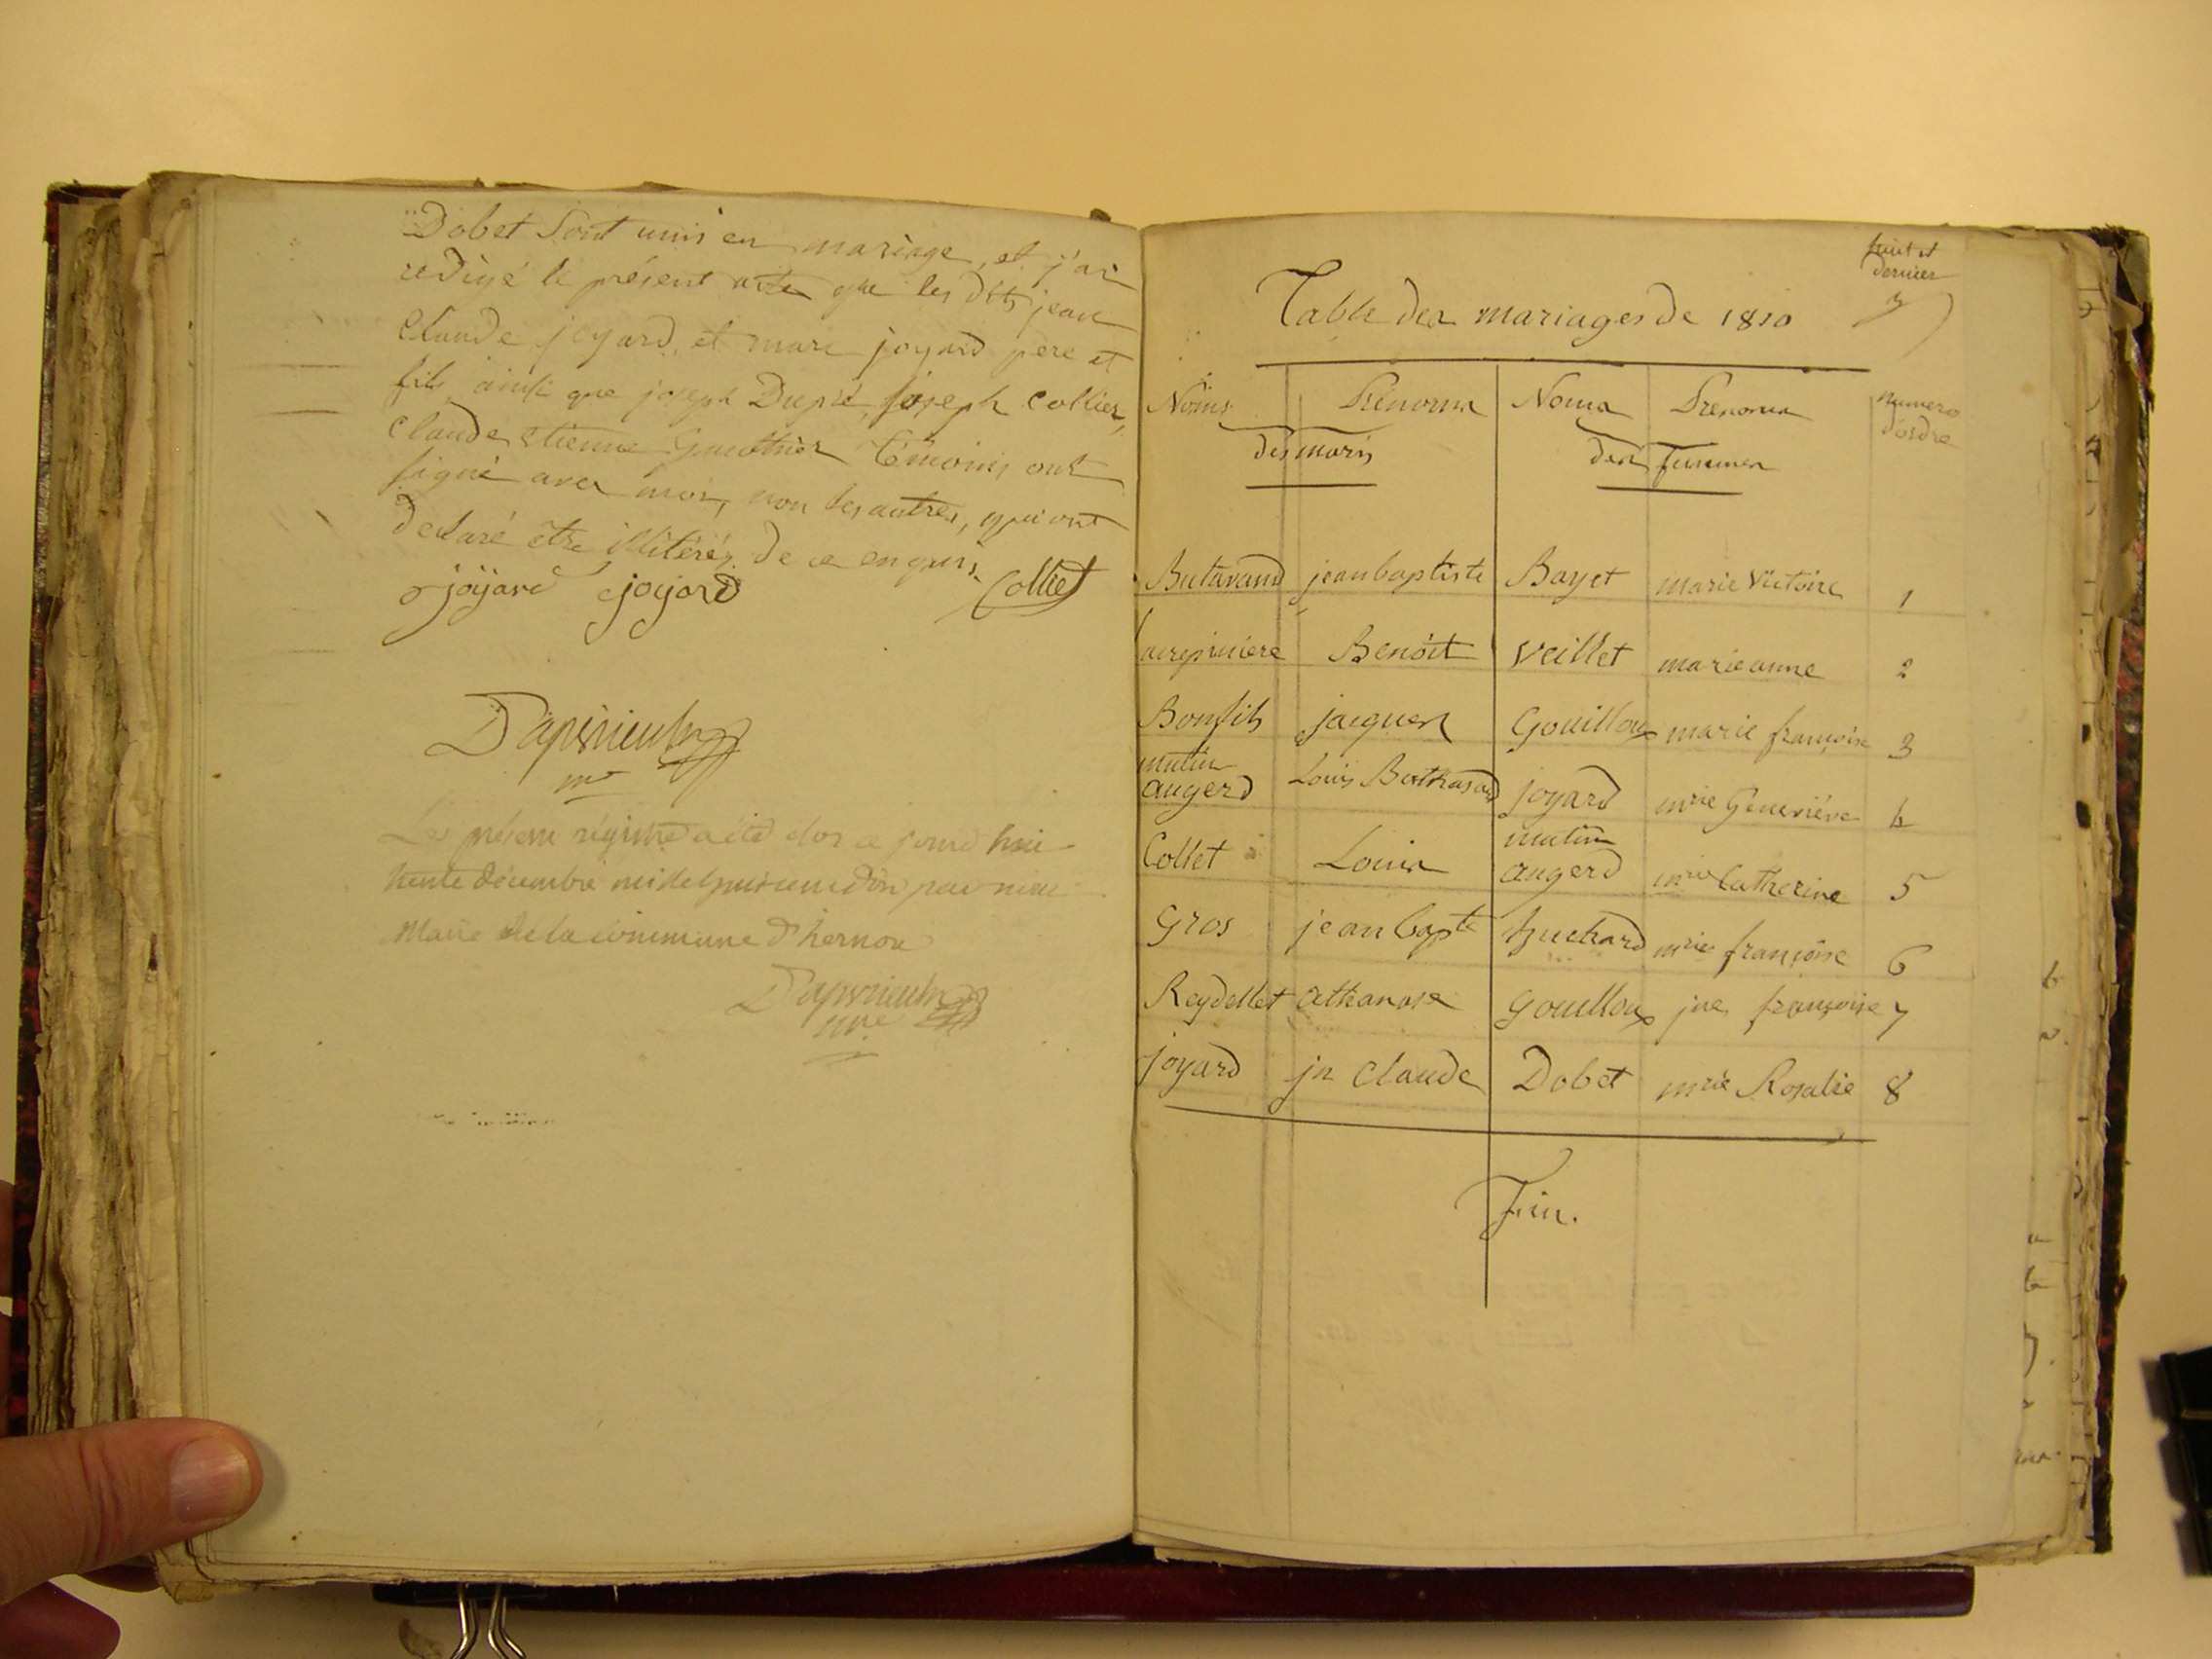 Dobet sont unis en mariage, et j'ai
redigé le présent acte que les dits jean
Claude joyard, et marc joyard père et
fils, ainsi que joseph Dupré, joseph Collier,
Claude etienne Gauthier témoins ont
signé avec moi, non les autres, qui ont
declaré etre illitérés de ce enquis.
joÿard joyard Collet
Le présent régistre a été clos ce jourd'hui
trente décembre mil huit cent dix par nous
Maire de la commune d'hernon
huit et
dernier
Table des mariages de 1810
Noms Prénoms Noms Prénoms numero
d'ordre
des maris des femmes
Butavand jean baptiste Bayet marie Victoire 1
Benoit Veillet marie anne 2
Bonfils jacques Gouilloux marie françoise 3
mutin
augerd Louis joyard mrie Geneviéve 4
Collet Louis mutin
augerd mrie Catherine 5
Gros jean bapte huchard mrie françoise 6
Reydellet athanase Gouilloux jne françoise 7
joyard jn Claude Dobet mrie Rosalie 8
Fin.